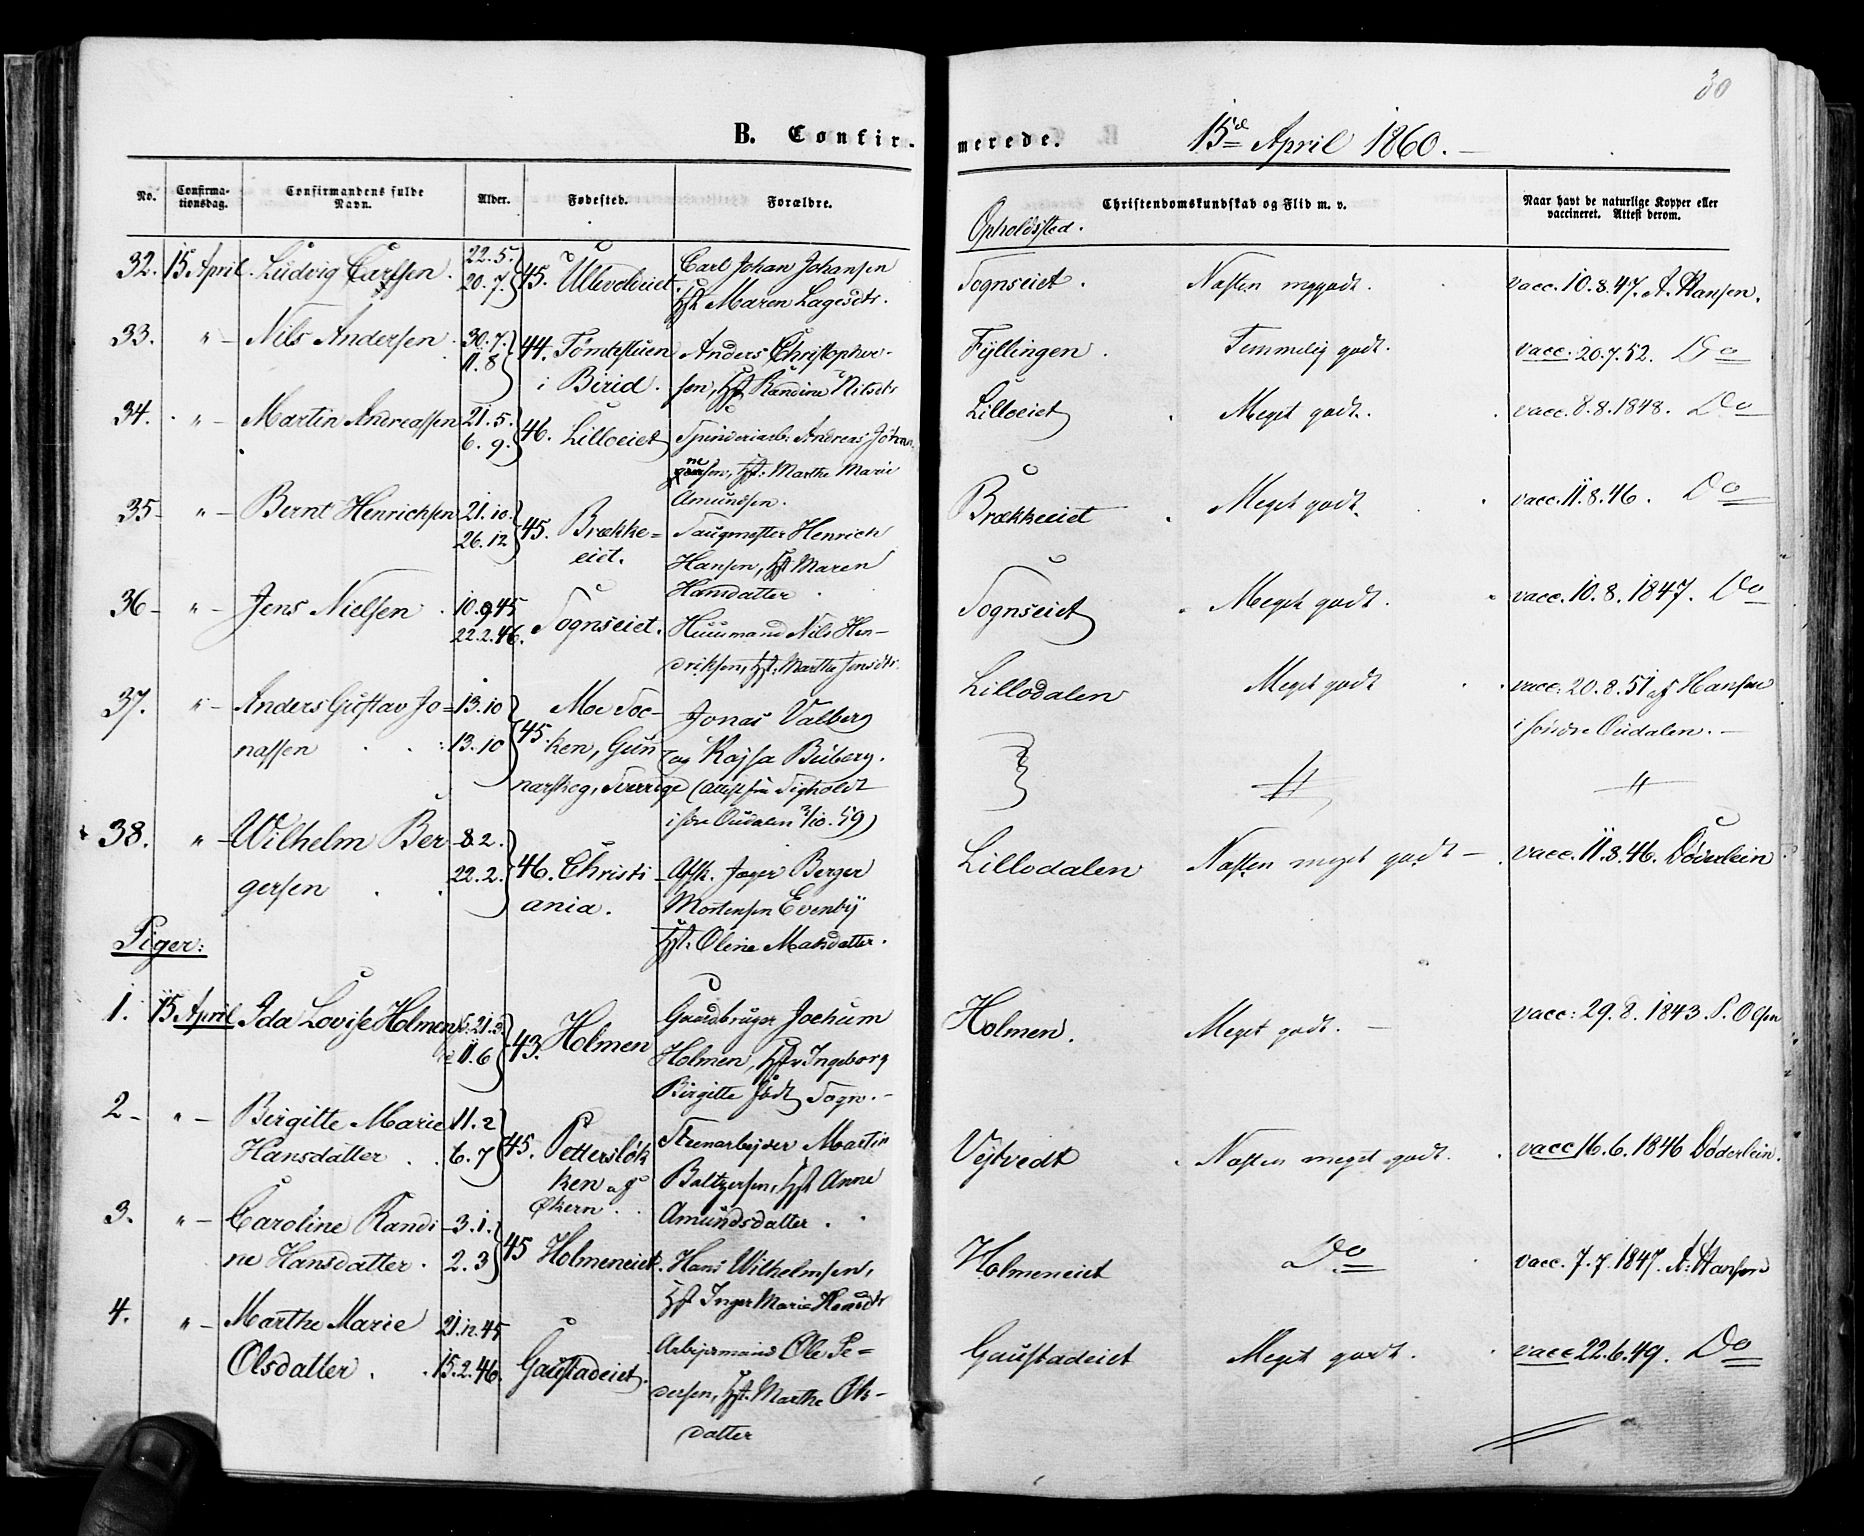 30
B. Confirmerede. 15de April 1860.
No. Confirmationsdag. Confirmandens fulde Navn. Alder. Fødested. Forældre. Opholdssted. Christendomskundskab og Flid m. v. Naar havt de naturlige Kopper eller vaccineret. Attest derom.
32. 15 April. Ludvig Carlsen. 22.5. 20.7. 45. Ullevoleiet. Carl Johan Johansen
Hst. Maren Lagesdtr. Sognseiet. Næsten mg godt. vacc. 10.8.47. A. Hansen.
33. " Nils Andersen 30.7. 11.8 44. Tømtestuen
i Birid. Anders Christopher-
sen, Hst Randine Nilsdtr Fyllingen. Temmelig godt. vacc: 20.7.52. Do
34. " Martin Andreassen 21.5. 6.9. 46. Lilloeiet Spinderiarb: Andreas Johan-
nesen, Hst: Marthe Marie
Amundsen. Lilloeiet Meget godt. vacc. 8.8.1848. Do
35 " Bernt Henrichsen 21.10. 26.12 45. Brække=
eiet. Saugmester Henrich
Hansen, Hst Maren
Hansdatter. Brækkeeiet Meget godt. vacc. 11.8.46. Do
36 " Jens Nielsen. 10.9.45 22.2.46. Sognseiet. Huusmand Nils Hen-
driksen, Hst: Marthe Jensdtr. Sognseiet Meget godt. vacc. 10.8.1847. Do
37. " Anders Gustav Jo=
nassen 13.10 13.10 45. Moe Soc-
ken, Gun
narskog, Sverrige Jonas Valberg
og Kajsa Buberg.
(Attest fra Sigholdt
i søre Oudalen 3/10.59) Lillodalen Meget godt vacc: 20.8.51 af Hansen
i søndre Oudalen.
38. " Wilhelm Ber
gersen 8.2. 22.2. 46. Christi
ania. Afsk. Jæger Berger
Mortensen Evenby
Hst. Oline Matsdatter. Lillodalen Næsten meget godt vacc. 11.8.46. Døderlein
Piger:
1. 15 April Ida Lovise Holmen 11.6 43. Holmen Gaardbruger Jochum
Holmen, Hstr Ingeborg
Birgitte født Sogn. Holmen. Meget godt. vacc: 29.8.1843 P. Olsen
2 " Birgitte Marie
Hansdatter 11.2 6.7 45. Pettersløk
ken og
Økern. Steenarbejder Martin
Baltzersen, Hst Anne
Amundsdatter. Vejtvedt Næsten meget godt. vacc 16.6.1846 Døderlein.
3. " Caroline Randi
ne Hansdatter. 3.1. 2.3 45 Holmeneiet. Hans Wilhelmsen,
Hst Inger Marie Hansdtr Holmeneiet Do vacc. 7.7.1847. A. Hansen
4. " Marthe Marie
Olsdatter. 21.12.45 15.2.46. Gaustadeiet. Arbejdsmand Ole Pe=
dersen, Hst. Marthe Ols-
datter Gaustadeiet Meget godt. vacc 22.6.49. Do